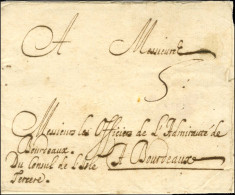 A Messieurs
5
Messieurs les Officiers de L'Admirauté de
Bourdeaux.
Du Consul de L'Isle A Bourdeaux
Tercere